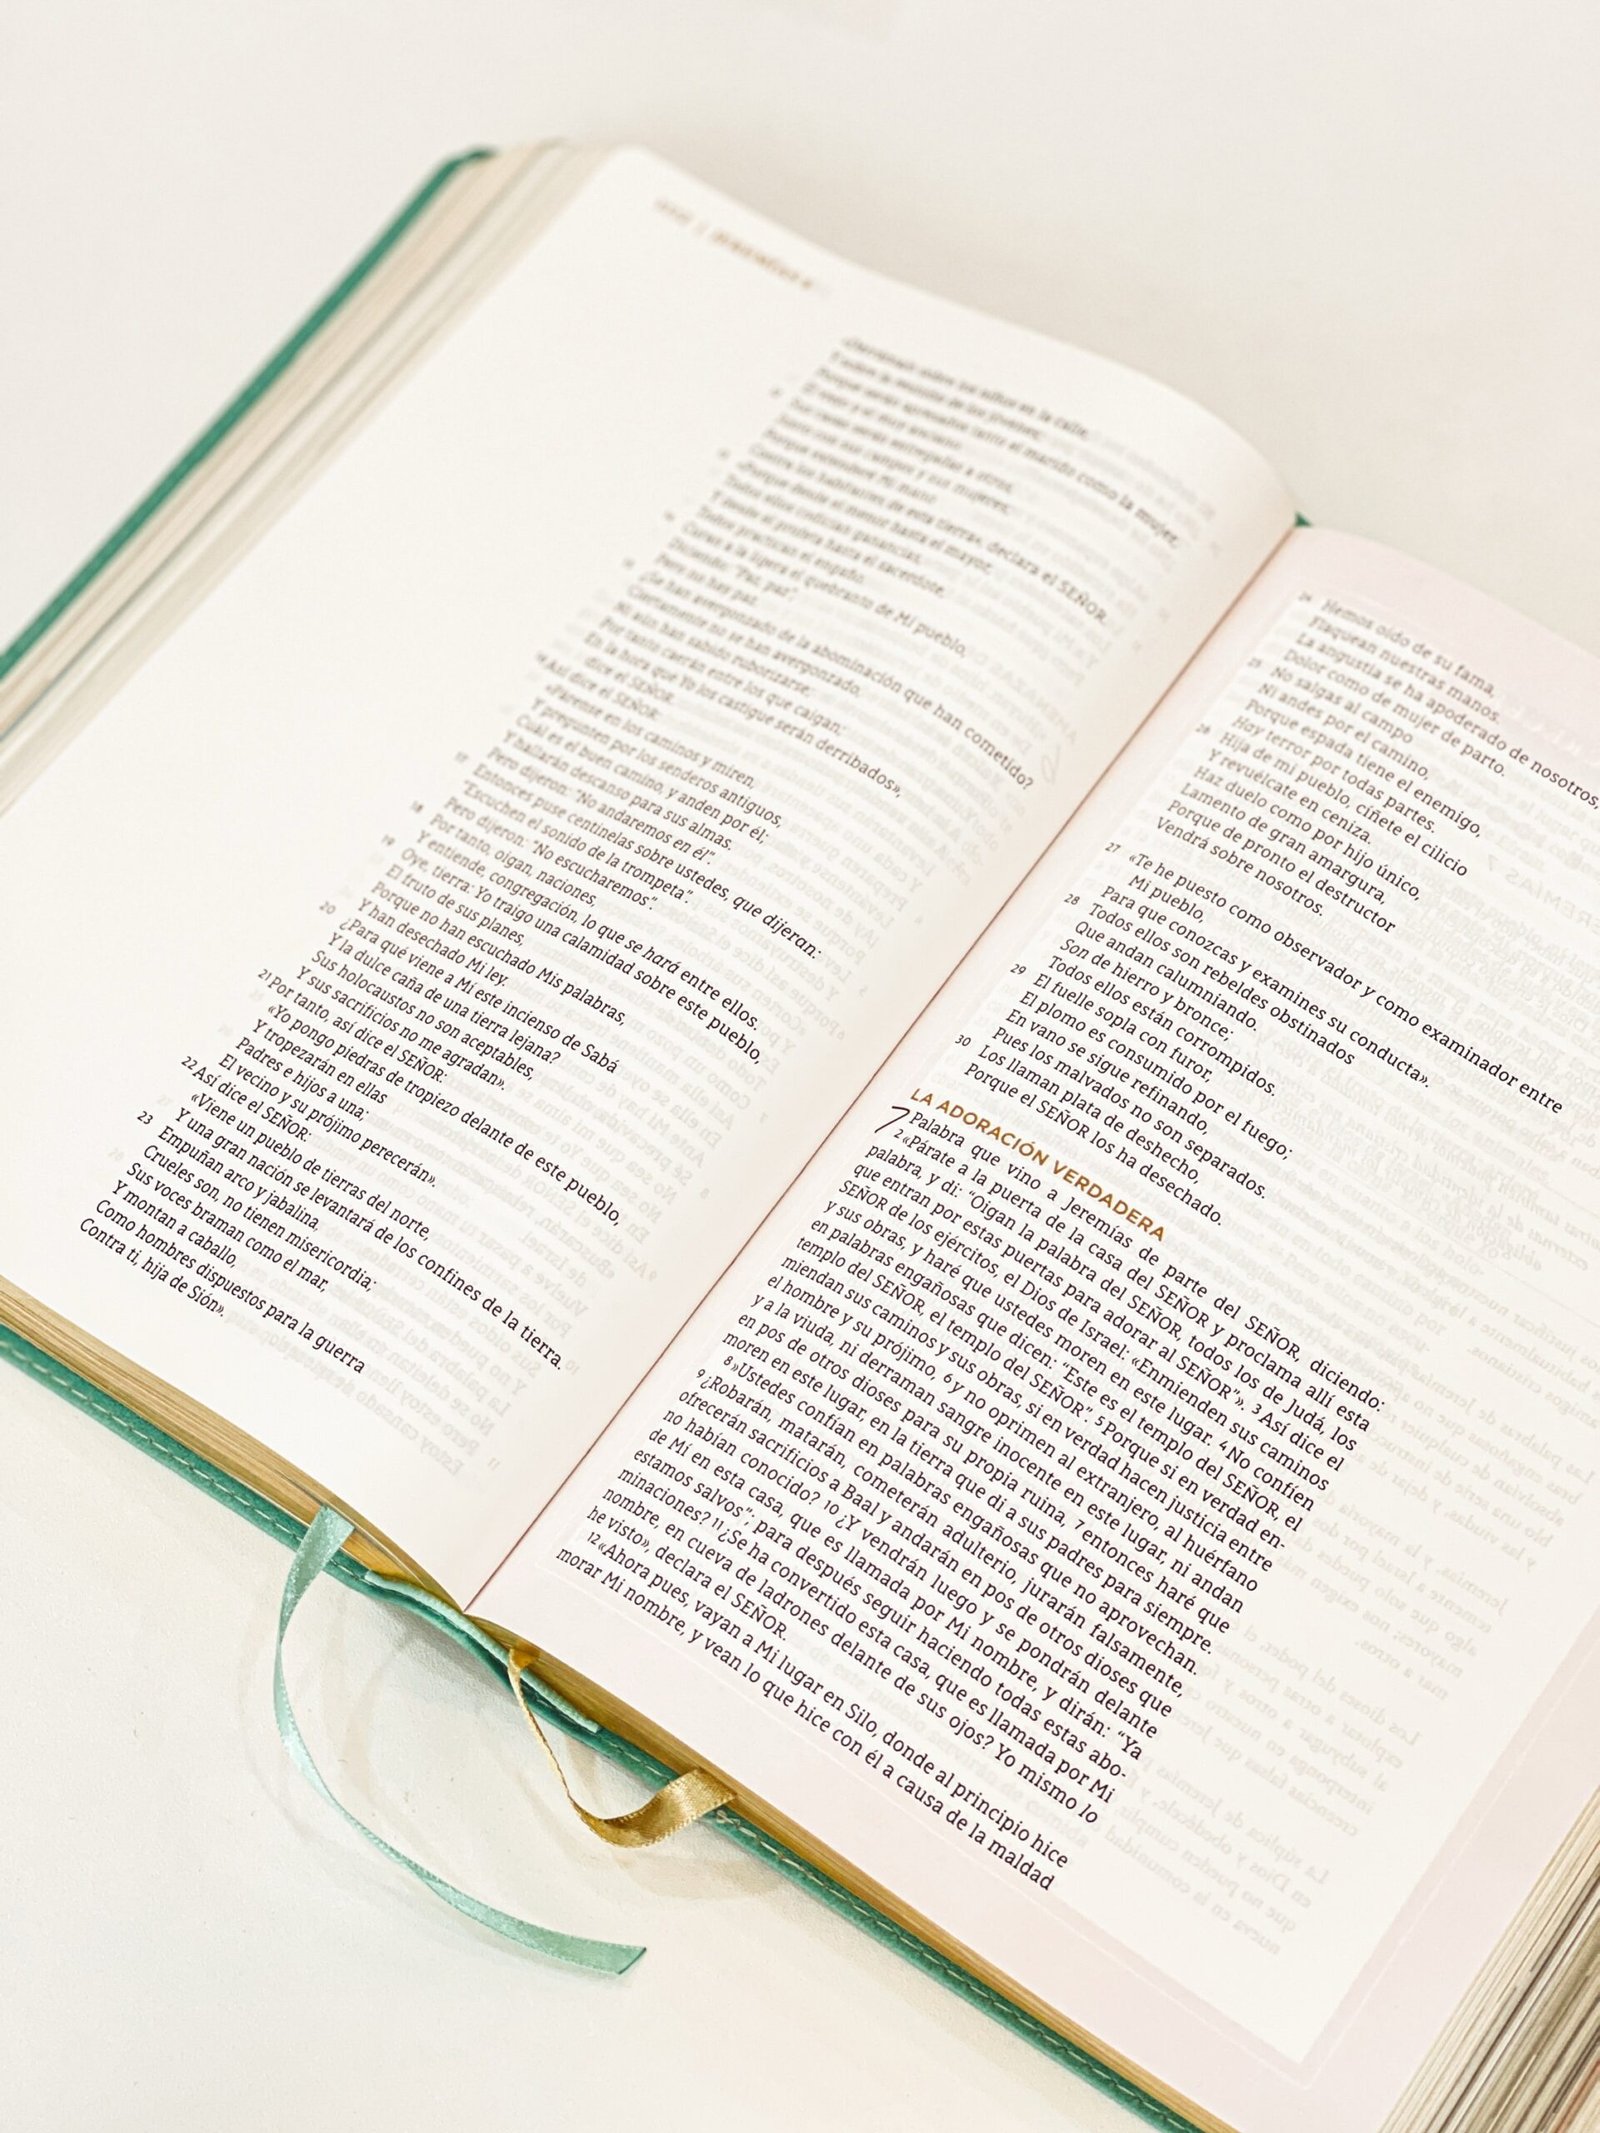 Derrámalo sobre los niños en la calle,
Y sobre la reunión de los jóvenes;
Porque serán apresados tanto el marido como la mujer,
El viejo y el muy anciano.
Sus casas serán entregadas a otros,
Junto con sus campos y sus mujeres;
Porque extenderé Mi mano
Contra los habitantes de esta tierra», declara el SEÑOR.
«Porque desde el menor hasta el mayor,
Todos ellos codician ganancias,
Y desde el profeta hasta el sacerdote,
Todos practican el engaño.
Curan a la ligera el quebranto de Mi pueblo,
Diciendo: "Paz, paz",
Pero no hay paz.
15 ¿Se han avergonzado de la abominación que han cometido?
Ciertamente no se han avergonzado,
Ni aún han sabido ruborizarse.
Por tanto caerán entre los que caigan;
En la hora que Yo los castigue serán derribados»,
dice el SEÑOR.
16 Así dice el SEÑOR:
«Párense en los caminos y miren,
Y pregunten por los senderos antiguos,
Cuál es el buen camino, y anden por él;
Y hallarán descanso para sus almas.
Pero dijeron: "No andaremos en él".
17 Entonces puse centinelas sobre ustedes, que dijeran:
"Escuchen el sonido de la trompeta".
Pero dijeron: "No escucharemos".
18 Por tanto, oigan, naciones,
Y entiende, congregación, lo que se hará entre ellos.
19 Oye, tierra: Yo traigo una calamidad sobre este pueblo,
El fruto de sus planes,
Porque no han escuchado Mis palabras,
Y han desechado Mi ley.
20 ¿Para qué viene a Mí este incienso de Sabá
Y la dulce caña de una tierra lejana?
Sus holocaustos no son aceptables,
Y sus sacrificios no me agradan».
21 Por tanto, así dice el SEÑOR:
«Yo pongo piedras de tropiezo delante de este pueblo,
Y tropezarán en ellas
Padres e hijos a una;
El vecino y su prójimo perecerán».
22 Así dice el SEÑOR:
«Viene un pueblo de tierras del norte,
Y una gran nación se levantará de los confines de la tierra.
23 Empuñan arco y jabalina,
Crueles son, no tienen misericordia;
Sus voces braman como el mar,
Y montan a caballo,
Como hombres dispuestos para la guerra
Contra ti, hija de Sión».
24 Hemos oído de su fama,
Flaquean nuestras manos.
La angustia se ha apoderado de nosotros,
Dolor como de mujer de parto.
25 No salgas al campo
Ni andes por el camino,
Porque espada tiene el enemigo,
Hay terror por todas partes.
26 Hija de mi pueblo, cíñete el cilicio
Y revuélcate en ceniza.
Haz duelo como por hijo único,
Lamento de gran amargura,
Porque de pronto el destructor
Vendrá sobre nosotros.
27 «Te he puesto como observador y como examinador entre
Mi pueblo,
Para que conozcas y examines su conducta».
28 Todos ellos son rebeldes obstinados
Que andan calumniando.
Son de hierro y bronce;
Todos ellos están corrompidos.
29 El fuelle sopla con furor,
El plomo es consumido por el fuego;
En vano se sigue refinando,
Pues los malvados no son separados.
30 Los llaman plata de deshecho,
Porque el SEÑOR los ha desechado.
LA ADORACIÓN VERDADERA
7 Palabra que vino a Jeremías de parte del SEÑOR, diciendo:
2 «Párate a la puerta de la casa del SEÑOR y proclama allí esta
palabra, y di: "Oigan la palabra del SEÑOR, todos los de Judá, los
que entran por estas puertas para adorar al SEÑOR"». 3 Así dice el
SEÑOR de los ejércitos, el Dios de Israel: «Enmienden sus caminos
y sus obras, y haré que ustedes moren en este lugar. 4 No confíen
en palabras engañosas que dicen: "Este es el templo del SEÑOR, el
templo del SEÑOR, el templo del SEÑOR". 5 Porque si en verdad en-
miendan sus caminos y sus obras, si en verdad hacen justicia entre
el hombre y su prójimo, 6 y no oprimen al extranjero, al huérfano
y a la viuda, ni derraman sangre inocente en este lugar, ni andan
en pos de otros dioses para su propia ruina, 7 entonces haré que
moren en este lugar, en la tierra que di a sus padres para siempre.
8 »Ustedes confían en palabras engañosas que no aprovechan.
9 ¿Robarán, matarán, cometerán adulterio, jurarán falsamente,
ofrecerán sacrificios a Baal y andarán en pos de otros dioses que
no habían conocido? 10 ¿Y vendrán luego y se pondrán delante
de Mí en esta casa, que es llamada por Mi nombre, y dirán: "Ya
estamos salvos"; para después seguir haciendo todas estas abo-
minaciones? 11 ¿Se ha convertido esta casa, que es llamada por Mi
nombre, en cueva de ladrones delante de sus ojos? Yo mismo lo
he visto», declara el SEÑOR.
12 «Ahora pues, vayan a Mi lugar en Silo, donde al principio hice
morar Mi nombre, y vean lo que hice con él a causa de la maldad